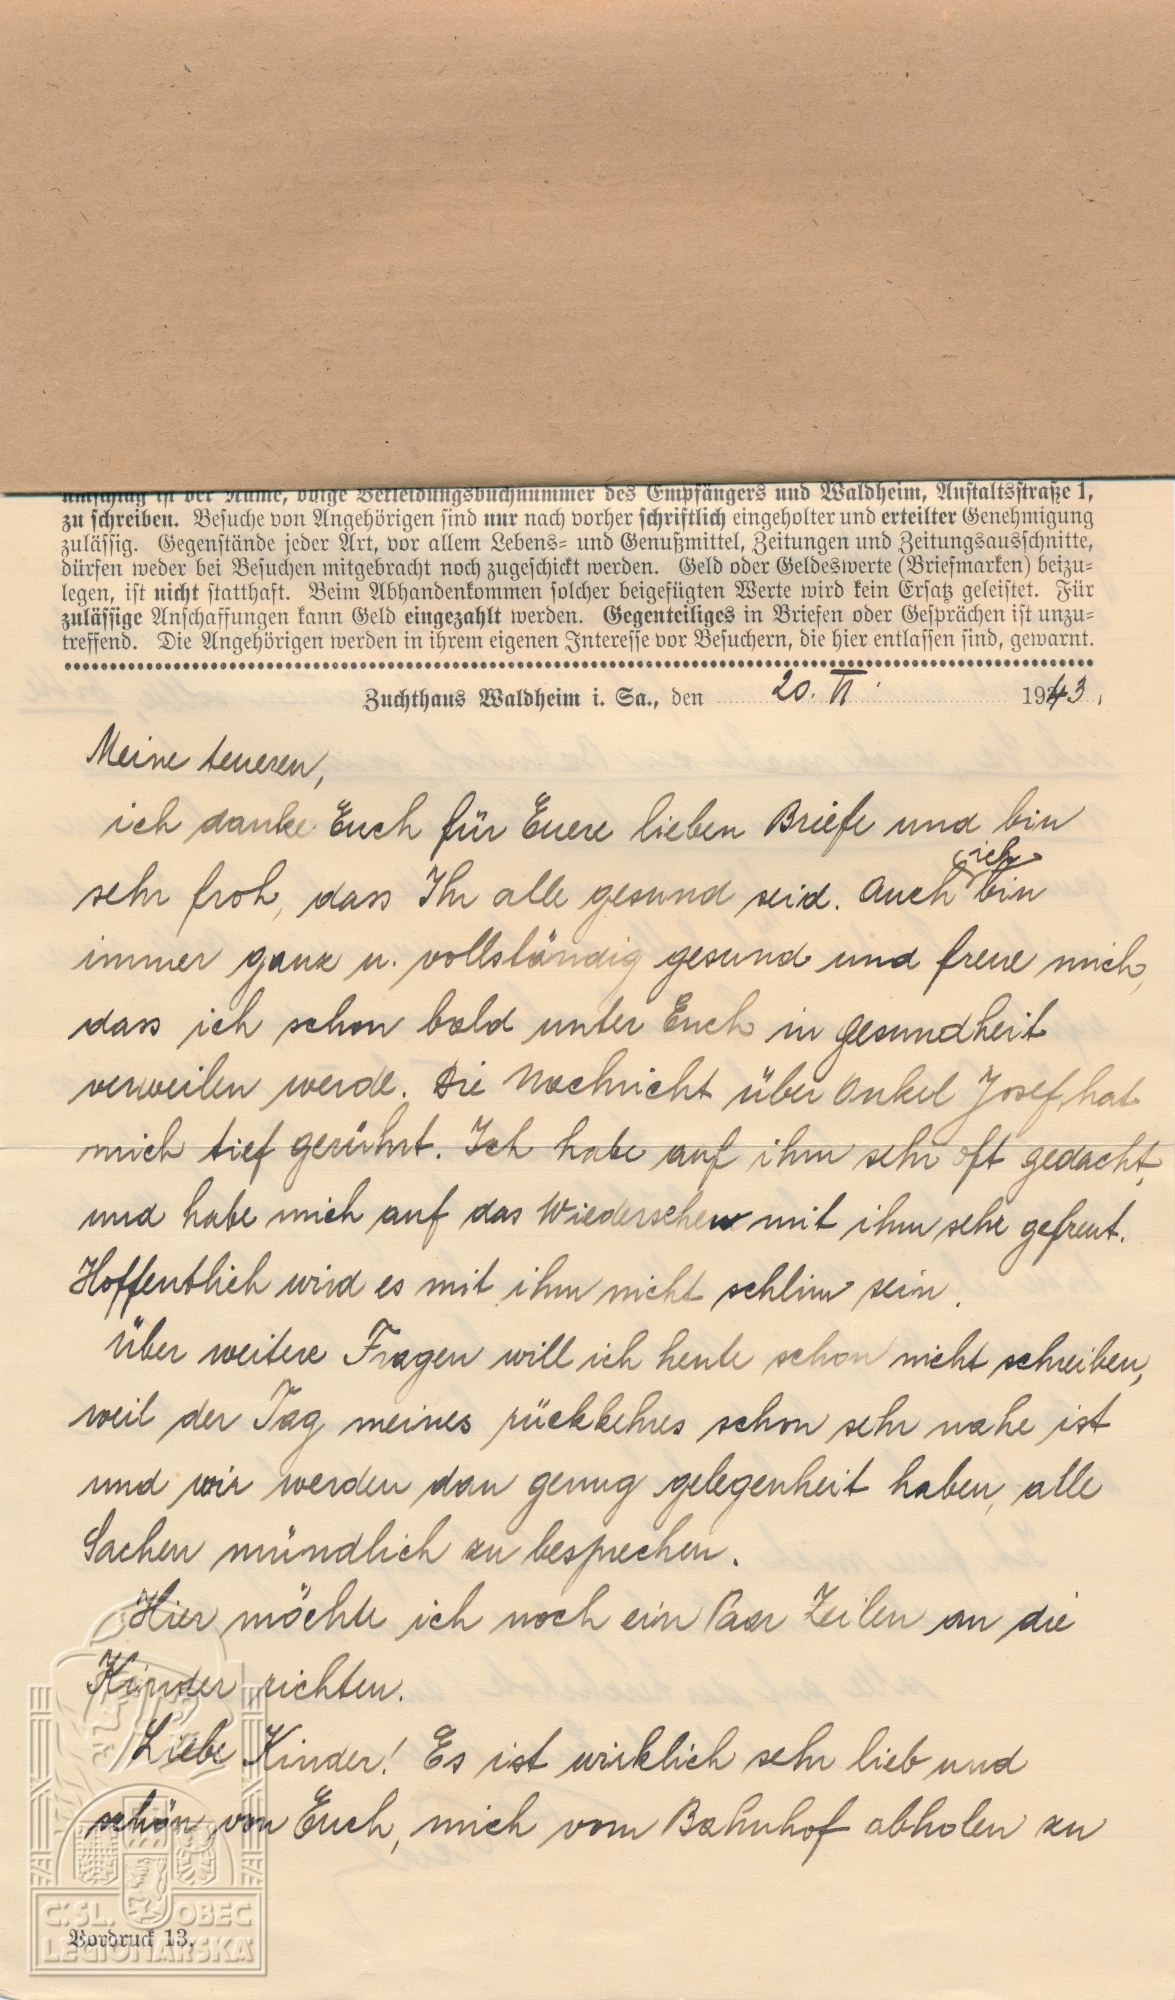 umschlag ist der Name, volle Verteidungsbuchnummer des Empfängers und Waldheim, Anstaltsstraße 1,
zu schreiben. Besuche von Angehörigen sind nur nach vorher schriftlich eingeholter und erteilter Genehmigung
zulässig. Gegenstände jeder Art, vor allem Lebens- und Genußmittel, Zeitungen und Zeitungsausschnitte,
dürfen weder bei Besuchen mitgebracht noch zugeschickt werden. Geld oder Geldeswerte (Briefmarken) beizu-
legen, ist nicht statthaft. Beim Abhandenkommen solcher beigefügten Werte wird kein Ersatz geleistet. Für
zulässige Anschaffungen kann Geld eingezahlt werden. Gegenteiliges in Briefen oder Gesprächen ist unzu-
treffend. Die Angehörigen werden in ihrem eigenen Interesse vor Besuchern, die hier entlassen sind, gewarnt.
Zuchthaus Waldheim i. Sa., den 20. VI. 1943,
Meine teueren,
ich danke Euch für Euere lieben Briefe und bin
sehr froh, dass Ihr alle gesund seid. Auch ich bin
immer ganz u. vollständig gesund und freue mich,
dass ich schon bald unter Euch in gesundheit
verweilen werde. Die Nachricht über Onkel Josef, hat
mich tief gerührt. Ich habe auf ihm sehr oft gedacht,
und habe mich auf das Wiedersehen mit ihm sehr gefreut.
Hoffentlich wird es mit ihm nicht schlim sein.
Über weitere Fragen will ich heute schon nicht schreiben,
weil der Tag meines rückkehres schon sehr nahe ist
und wir werden dan genug gelegenheit haben, alle
Sachen mündlich zu besprechen.
Hier möchte ich noch ein Paar Zeilen an die
Kinder richten.
Liebe Kinder! Es ist wirklich sehr lieb und
schön von Euch, mich vom Bahnhof abholen zu
Vordruck 13.
Č.SL. OBEC
LEGIONÁŘSKÁ